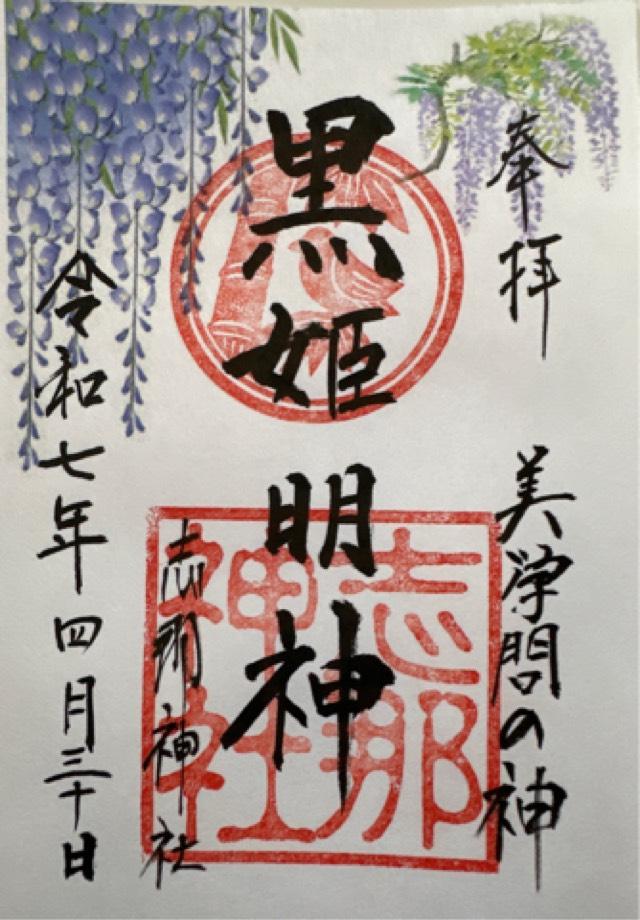 奉拝
美学問の神
黒姫
明神
志那神社
志那神社
令和七年四月三十日